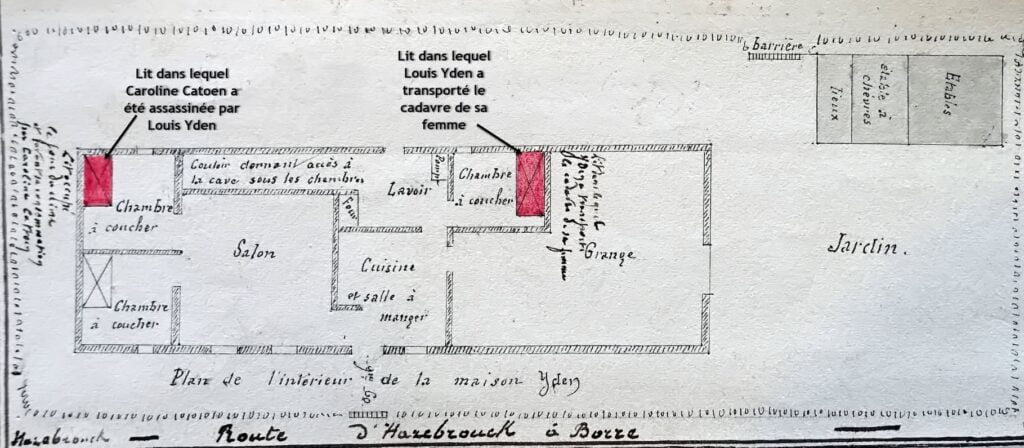 Lit dans lequel
Caroline Catoen a
été assassinée par
Louis Yden
Lit dans lequel
Louis Yden a
transporté le
cadavre de sa
femme
barrière
lieux
étable à
chèvres
Etables
Lit occupé
Chambre
à coucher
Couloir donnant accès à
la cave sous les chambres
Lavoir
Pompe
Four
Chambre
à coucher
Lit dans lequel
Yden a transporté
le cadavre de sa femme
Salon
Cuisine
et salle à
manger
Grange
Jardin.
Chambre
à coucher
Plan de l'intérieur de la maison Yden
Hazebrouck
Route d'Hazebrouck à Borre